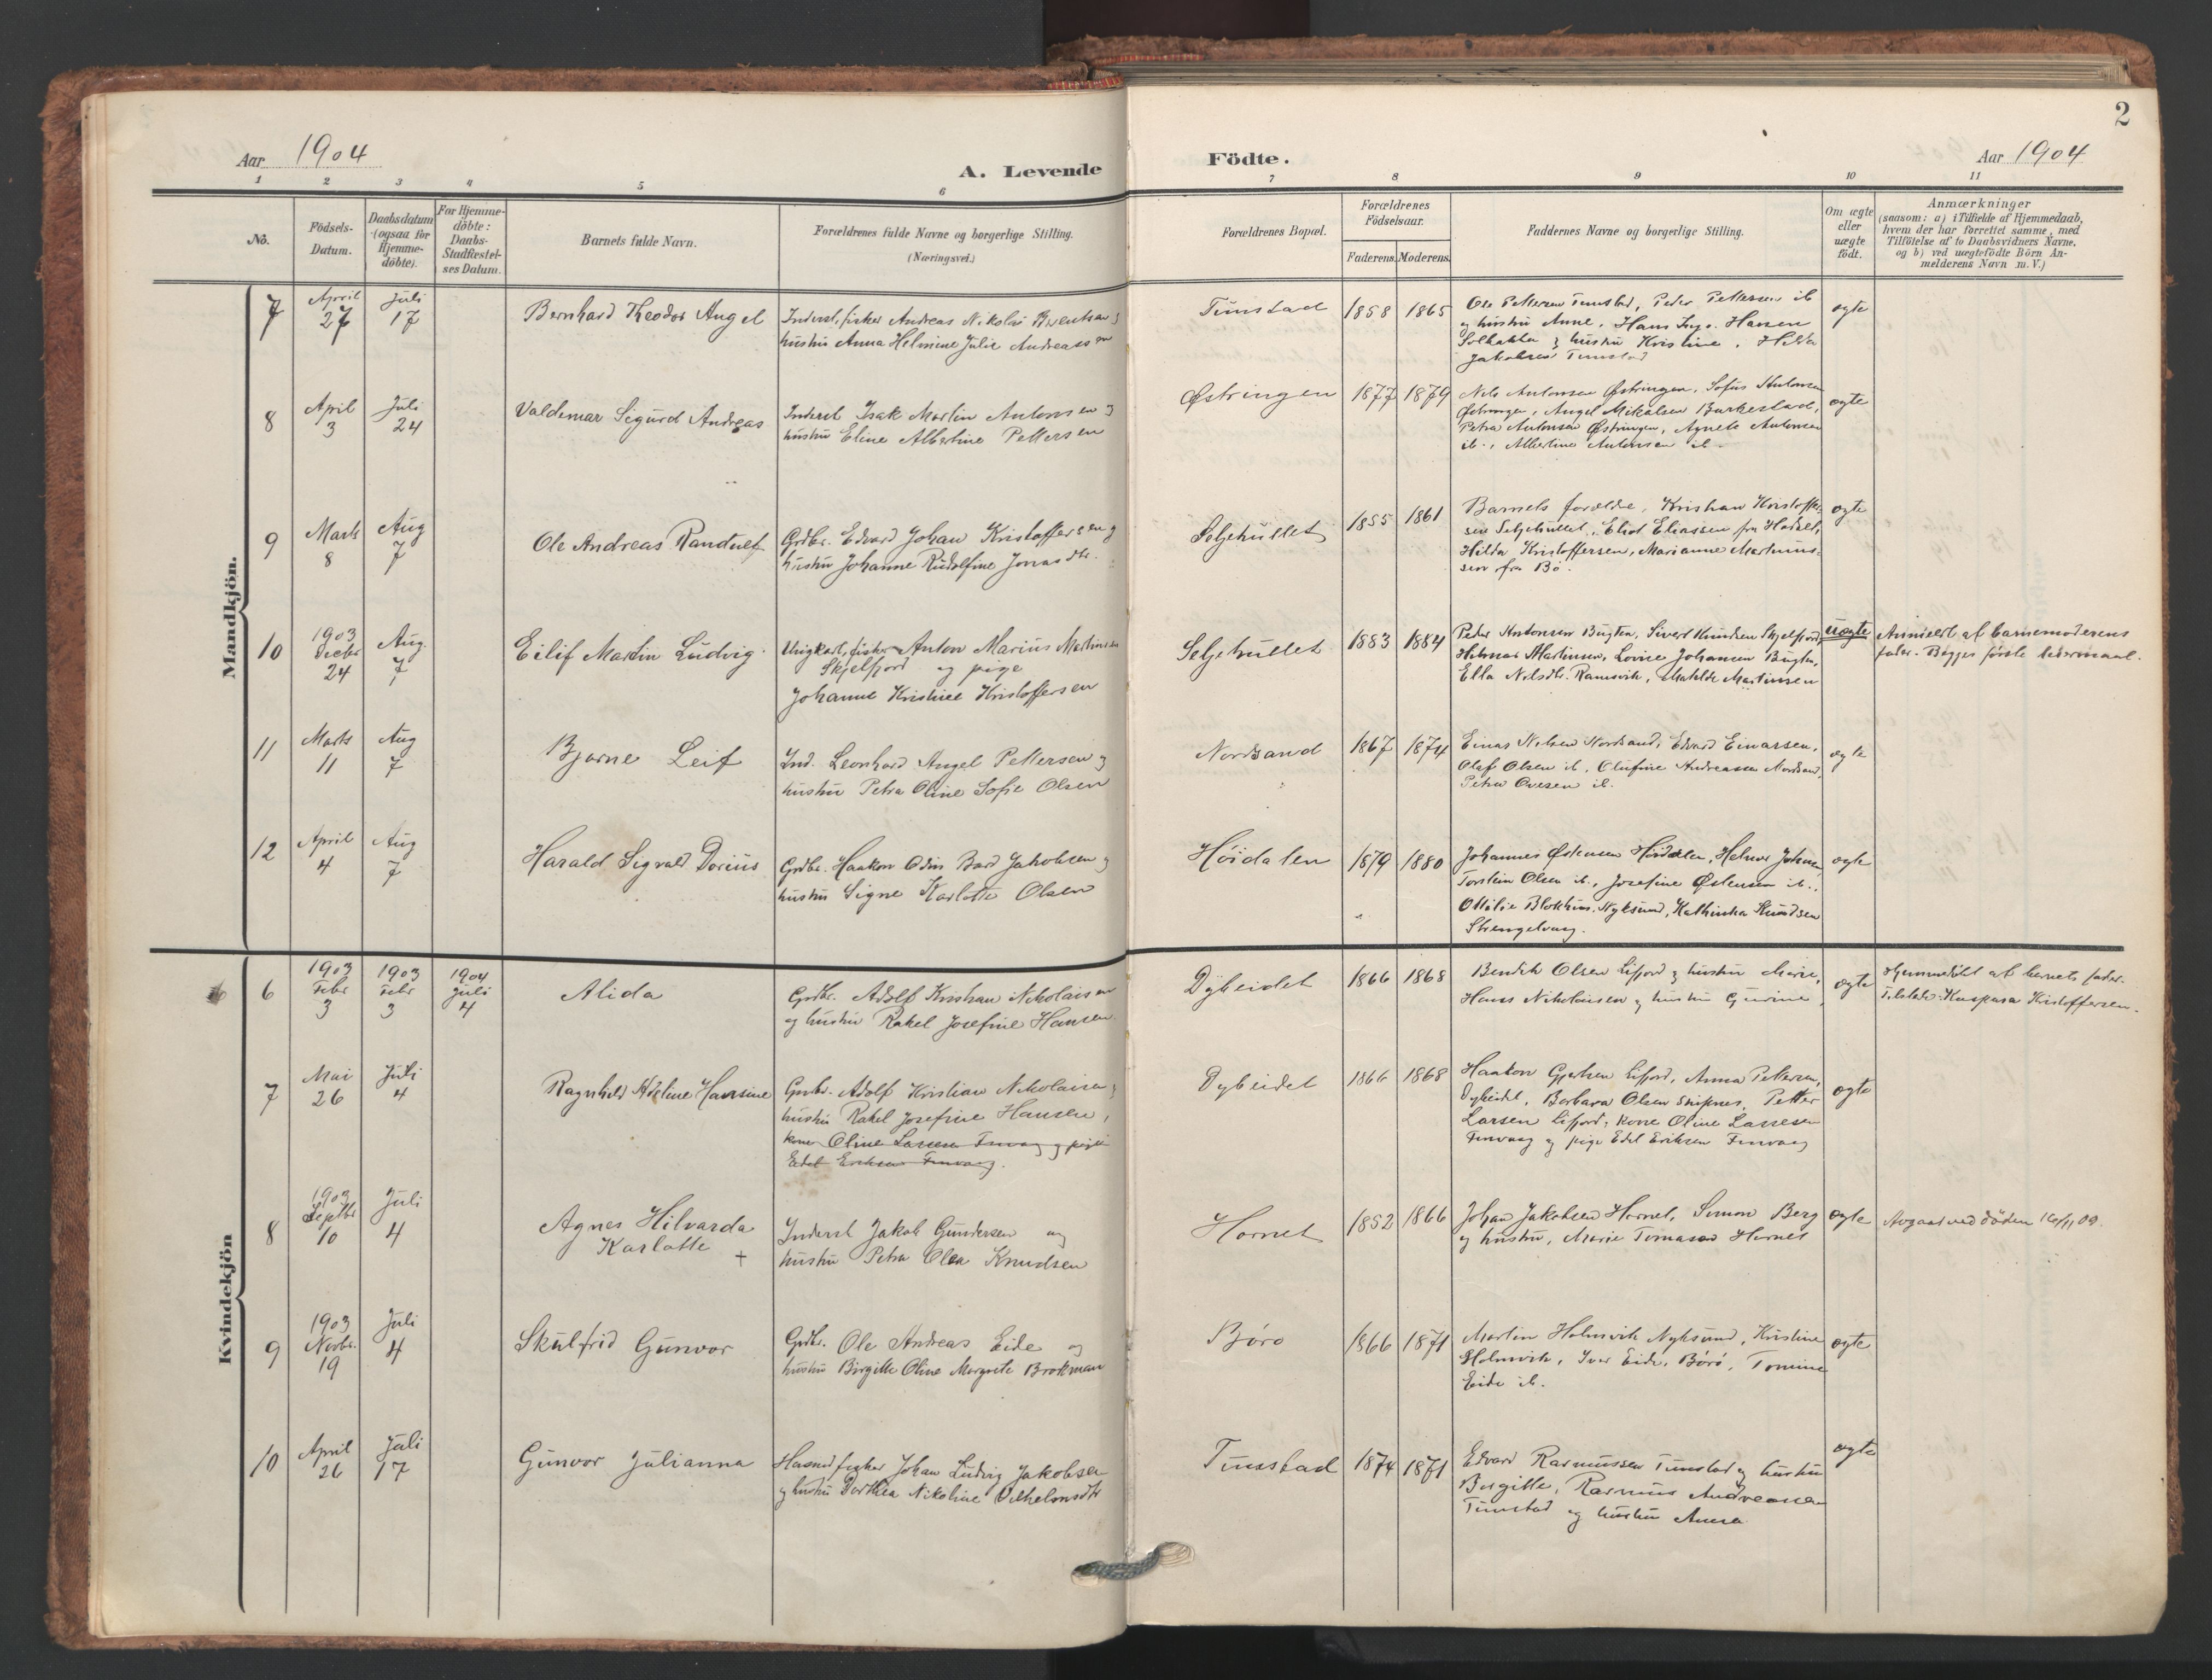 2
Aar 1904
A. Levende
Födte.
Aar 1904
1 2 3 4 5 6 7 8 9 10 11
No.
Födsels-
Datum.
Daabsdatum
(ogsaa for
Hjemme-
döbte).
For Hjemme-
döbte:
Daabs-
Stadfæstel-
ses Datum.
Barnets fulde Navn.
Forældrenes fulde Navne og borgerlige Stilling.
(Næringsvei.)
Forældrenes Bopæl.
Forældrenes
Födselsaar.
Faderens. Moderens.
Faddernes Navne og borgerlige Stilling.
Om ægte
eller
uægte
födt.
Anmærkninger
(saasom: a) i Tilfælde af Hjemmedaab,
hvem der har forrettet samme, med
Tilföielse af to Daabsvidners Navne.
og b) ved uægtefödte Börn An-
melderens Navn m. V.)
Mandkjön.
7
April
27
Juli
17
Bernhard Theodor Angel
Inderst, fisker Andreas Nikolai
hustru Anna Helmine Julie Andreassen
Tunstad
1858 1865
Ole Pettersen Tunstad, Peder Pettersen ib
og hustru Anne, Hans Ing. Hansen
Solbakken og hustru Kristine, Hilda
Jakobsen Tunstad
ægte
8
April
3
Juli
24
Valdemar Sigurd Andreas
Inderst Isak Martin Antonsen og
hustru Eline Albertine Pettersen
Østringen
1877 1879
Nils Antonsen Østringen, Sofus Antonsen
Østringen, Angel Mikalsen Barkestad,
Petra Antonsen Østringen, Agnete Antonsen
ib., Albertine Antonsen ib.
ægte
9
Marts
8
Aug
7
Ole Andreas Randulf
Grdbr. Edvard Johan Kristoffersen og
hustru Johanne Rudolfine Jonasdtr.
Seljehullet
1855 1861
Barnets forældre, Kristian Kristoffer-
sen Seljehullet, Eliot Eliassen fra Hadsel,
Hilda Kristoffersen, Marianne Martinus-
sen fra Bø.
ægte
10
1903
Decbr
24
Aug.
7
Eilif Martin Ludvig
Ungkarl, fisker Anton Marius Martinsen
Skjelfjord og pige
Johanne Kristine Kristoffersen
Seljehullet
1883 1884
Peder Antonsen Bugten, Sivert Knudsen Skjelfjord,
Helmer Martinsen, Lovise Johansen Bugten,
Ella Nilsdtr. Ramsvik, Matilde Martinsen
uægte
Anmeldt af barnemoderens
fader. Begges første leiermaal.
11
Marts
11
Aug
7
Bjarne Leif
Ind. Leonhard Angel Pettersen og
hustru Petra Oline Sofie Olsen
Nordsand
1867 1874
Einar Nilsen Nordsand, Edvard Einarsen,
Olaf Olsen ib, Olufine Andreassen Nordsand,
Petra Ovesen ib.
ægte
12
April
4
Aug
7
Harald Sigvald Dorius
Grdbr. Haakon Odin Bard Jakobsen og
hustru Signe Karlotte Olsen
Høidalen
1879 1880
Johannes Østensen Høidalen, Helmer Johnsen
Torstein Olsen ib., Josefine Østensen ib.,
Ottilie Blokhus, Nyksund, Kathinka Knudsen
Strengelvaag.
ægte
Kvindekjön
6
1903
Febr
3
1903
Febr
3
1904
Juli
4
Alida
Grdbr. Adolf Kristian Nikolaisen
og hustru Rakel Josefine Hansen
Dybeidet
1866 1868
Bendik Olsen Lifjord og hustru Marie,
Hans Nikolaisen og hustru Gurine,
ægte
Hjemmedøbt af barnets fader.
Tilstede: Kaspara Kristoffersen.
7
Mai
26
Juli
4
Ragnhild Adeline Hansine
Grdbr. Adolf Kristian Nikolaisen og
hustru Rakel Josefine Hansen,
kone Oline Larsen Finvaag og pige
Edel Eriksen Finvaag.
Dybeidet
1866 1868
Haakon Gjertsen Lifjord, Anna Pettersen,
Dybeidet, Barbara Olsen Snipnes, Petter
Larsen Lifjord, kone Oline Larsen
Finvaag og pige Edel Eriksen Finvaag
ægte
8
1903
Septbr
10
Juli
4
Agnes Hilvarda
Karlotte +
Inderst Jakob Gundersen og
hustru Petra Olea Knudsen
Hornet
1852 1866
Johan Jakobsen Hornet, Simon Berg
og hustru, Marie Tomasen Hornet
ægte
Avgaat ved døden 16/11 09.
9
1903
Novbr.
19
Juli
4
Skulfrid Gunvor
Grdbr. Ole Andreas Eide og
hustru Birgitte Oline Margrete Brokman
Børø
1866 1871
Martin Holmvik Nyksund, Kristine
Holmvik, Ivar Eide, Børø, Tomine
Eide ib.
ægte
10
April
26
Juli
17
Gunvor Julianna
Husmd fisker Johan Ludvig Jakobsen
og hustru Dorthea Nikoline Vilhelmsdtr
Tunstad
1874 1871
Edvard Rasmussen Tunstad og hustru
Birgitte, Rasmus Andreassen
Tunstad og hustru Anna
ægte